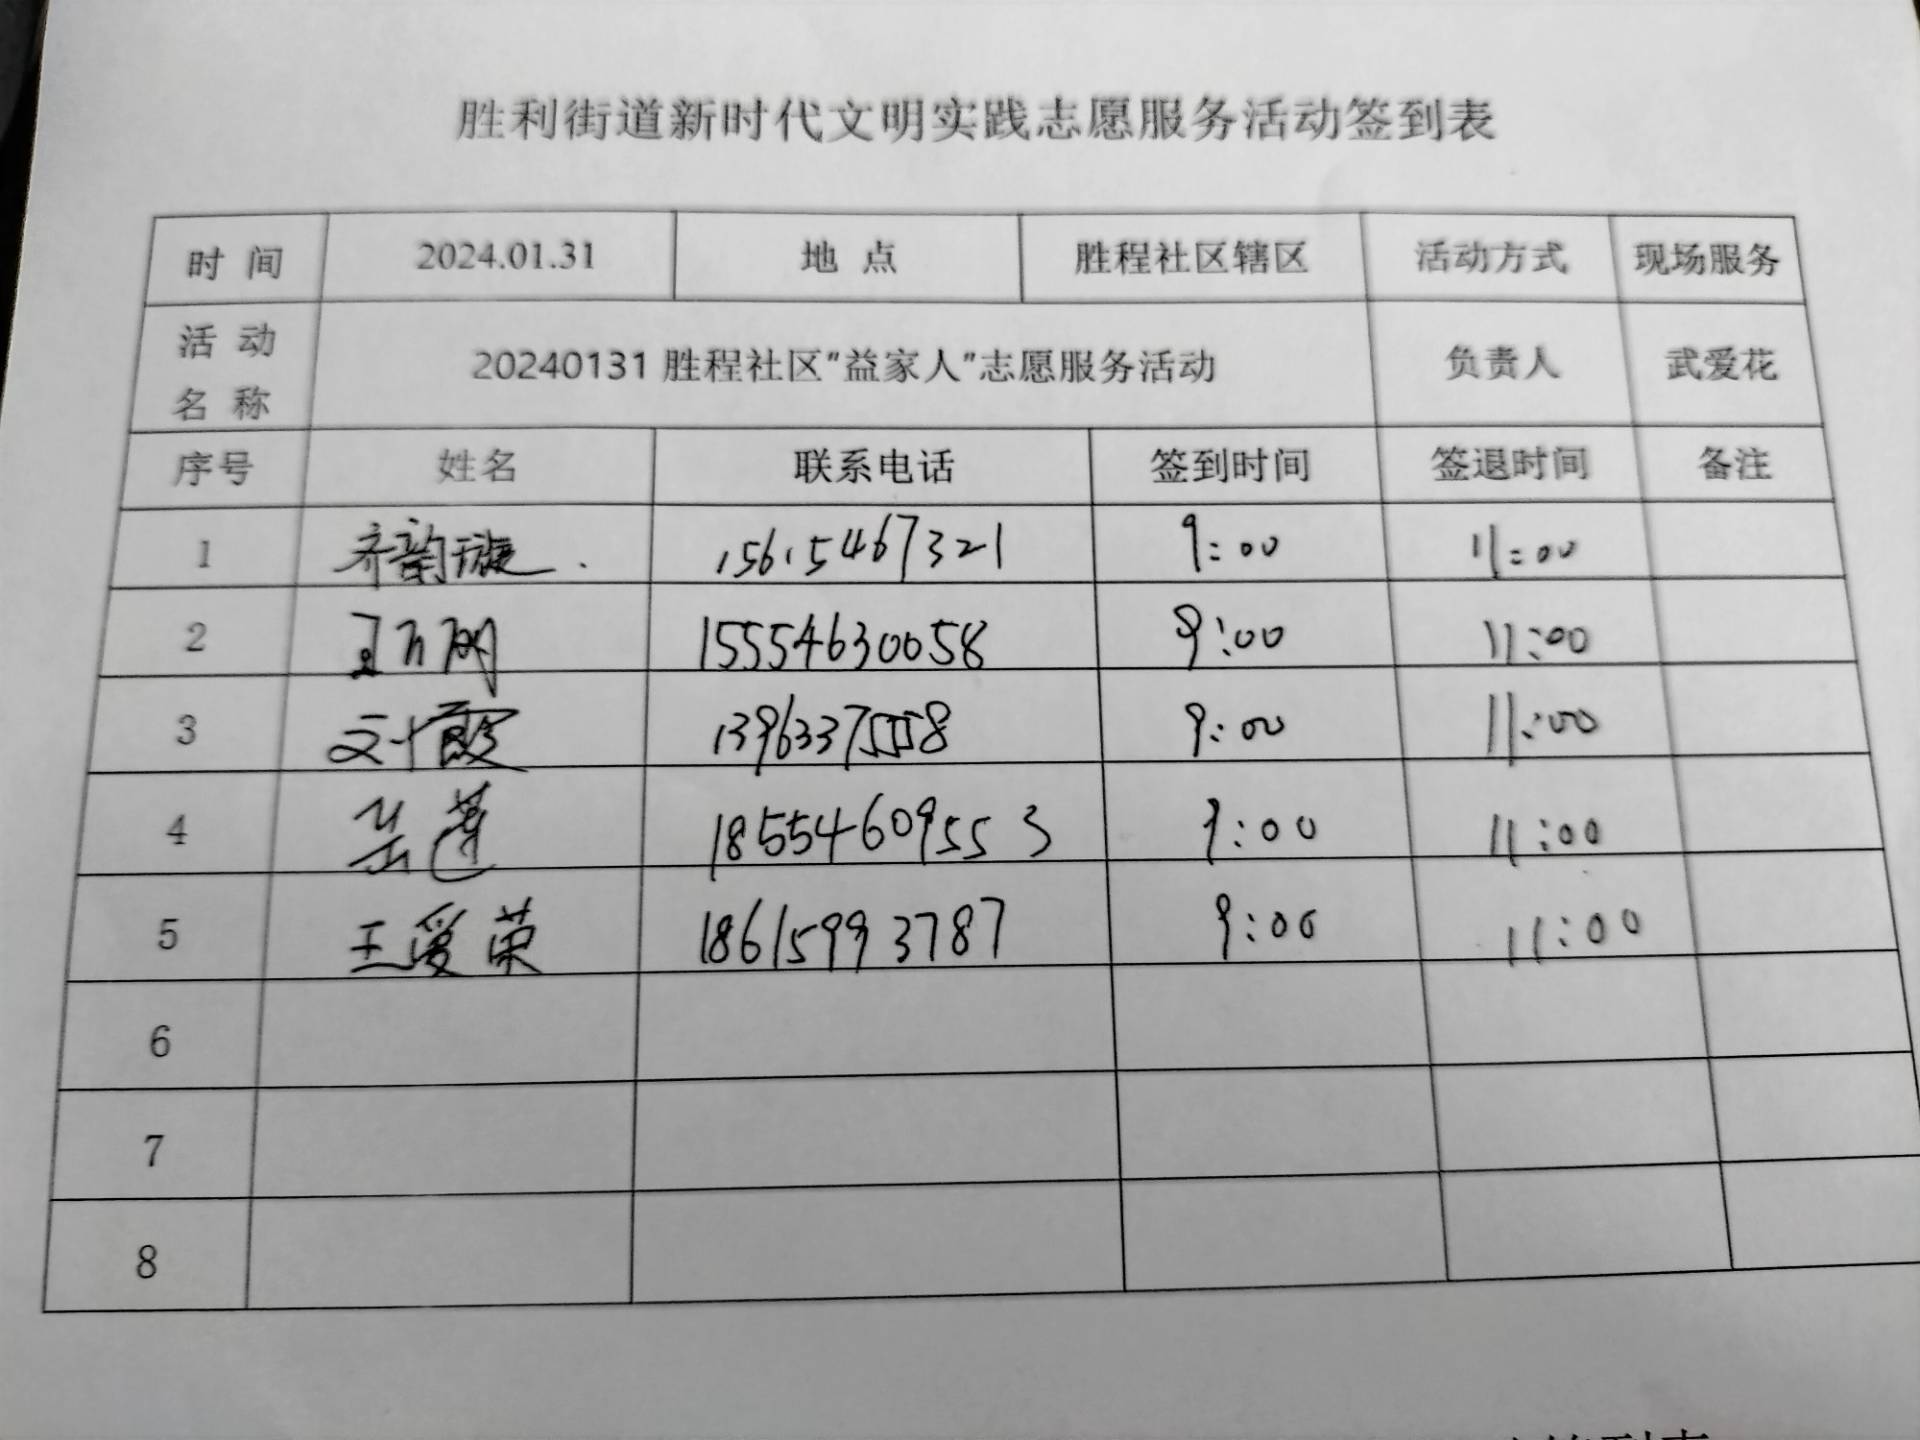 胜利街道新时代文明实践志愿服务活动签到表
时 间 2024.01.31 地 点 胜程社区辖区 活动方式 现场服务
活 动 名 称 20240131 胜程社区"益家人"志愿服务活动 负责人 武爱花
序号 姓名 联系电话 签到时间 签退时间 备注
1 齐韵璇 15615467321 9:00 11:00
2 15554630058 9:00 11:00
3 刘霞 13963375558 9:00 11:00
4 岳莲 18554609553 9:00 11:00
5 王爱荣 18615993787 9:00 11:00
6
7
8